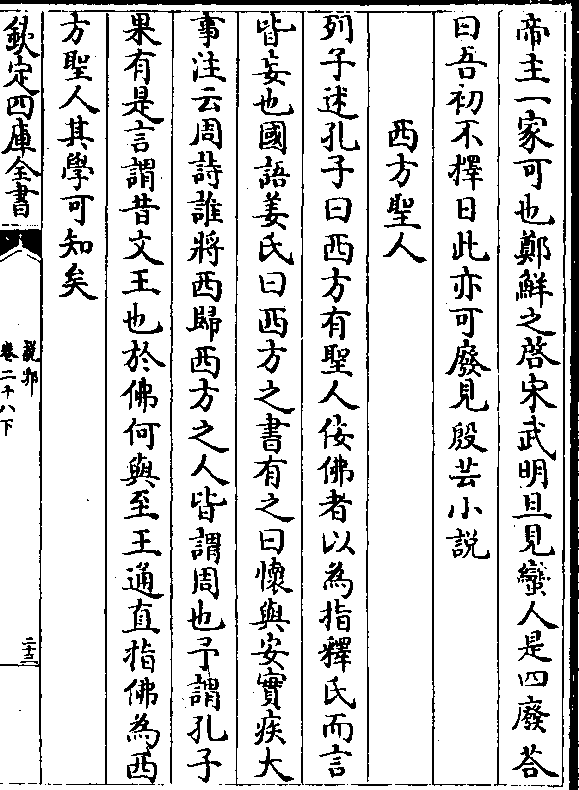 帝主一家可也鄭鮮之啓宋武明旦見蠻人是四廢荅
曰吾初不擇日此亦可廢見殷芸小説
西方聖人
列子述孔子曰西方有聖人佞佛者以為指釋氏而言
皆妄也國語姜氏曰西方之書有之曰懷與安實疚大
事注云周詩誰將西歸西方之人皆謂周也予謂孔子
果有是言謂昔文王也於佛何與至王通直指佛為西
方聖人其學可知矣
欽定四庫全書
説郛
卷二十八下
二十三